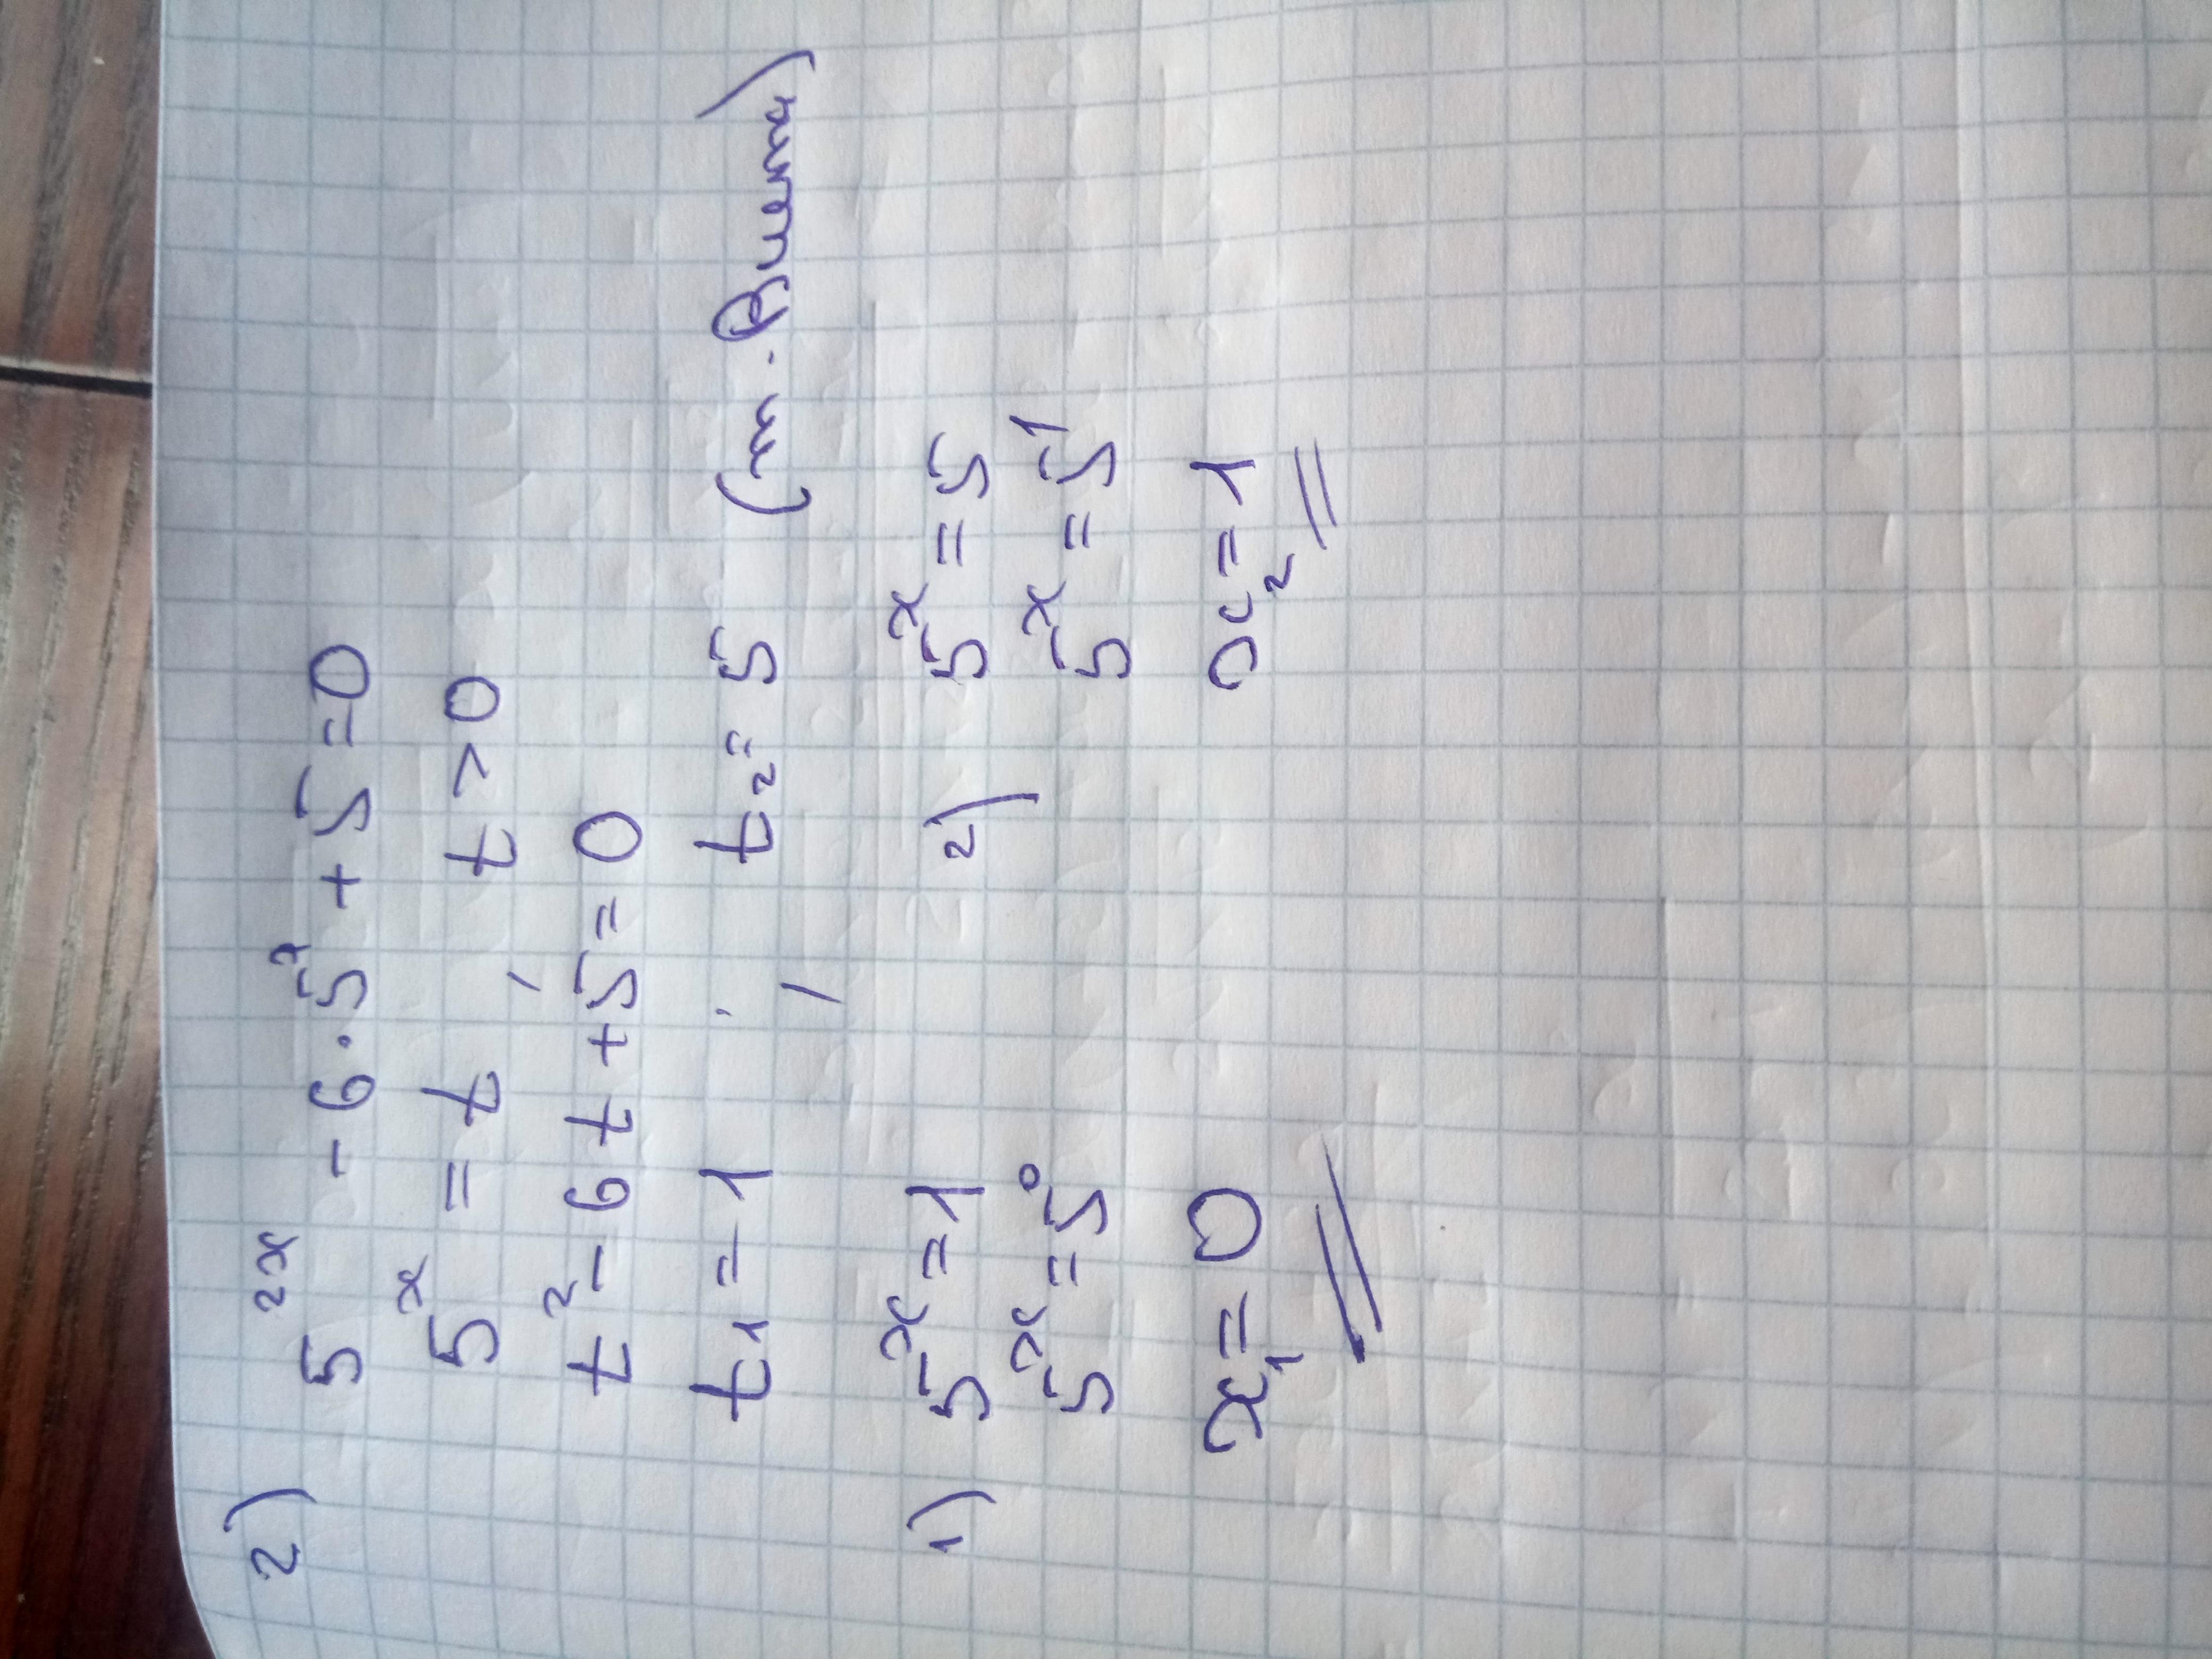 2) 5²ˣ - 6 · 5ˣ + 5 = 0
5ˣ = t, t > 0
t² - 6t + 5 = 0
t₁ = 1, t₂ = 5 (т. Виета)
1) 5ˣ = 1 2) 5ˣ = 5
5ˣ = 5⁰ 5ˣ = 5¹
x₁ = 0 x₂ = 1